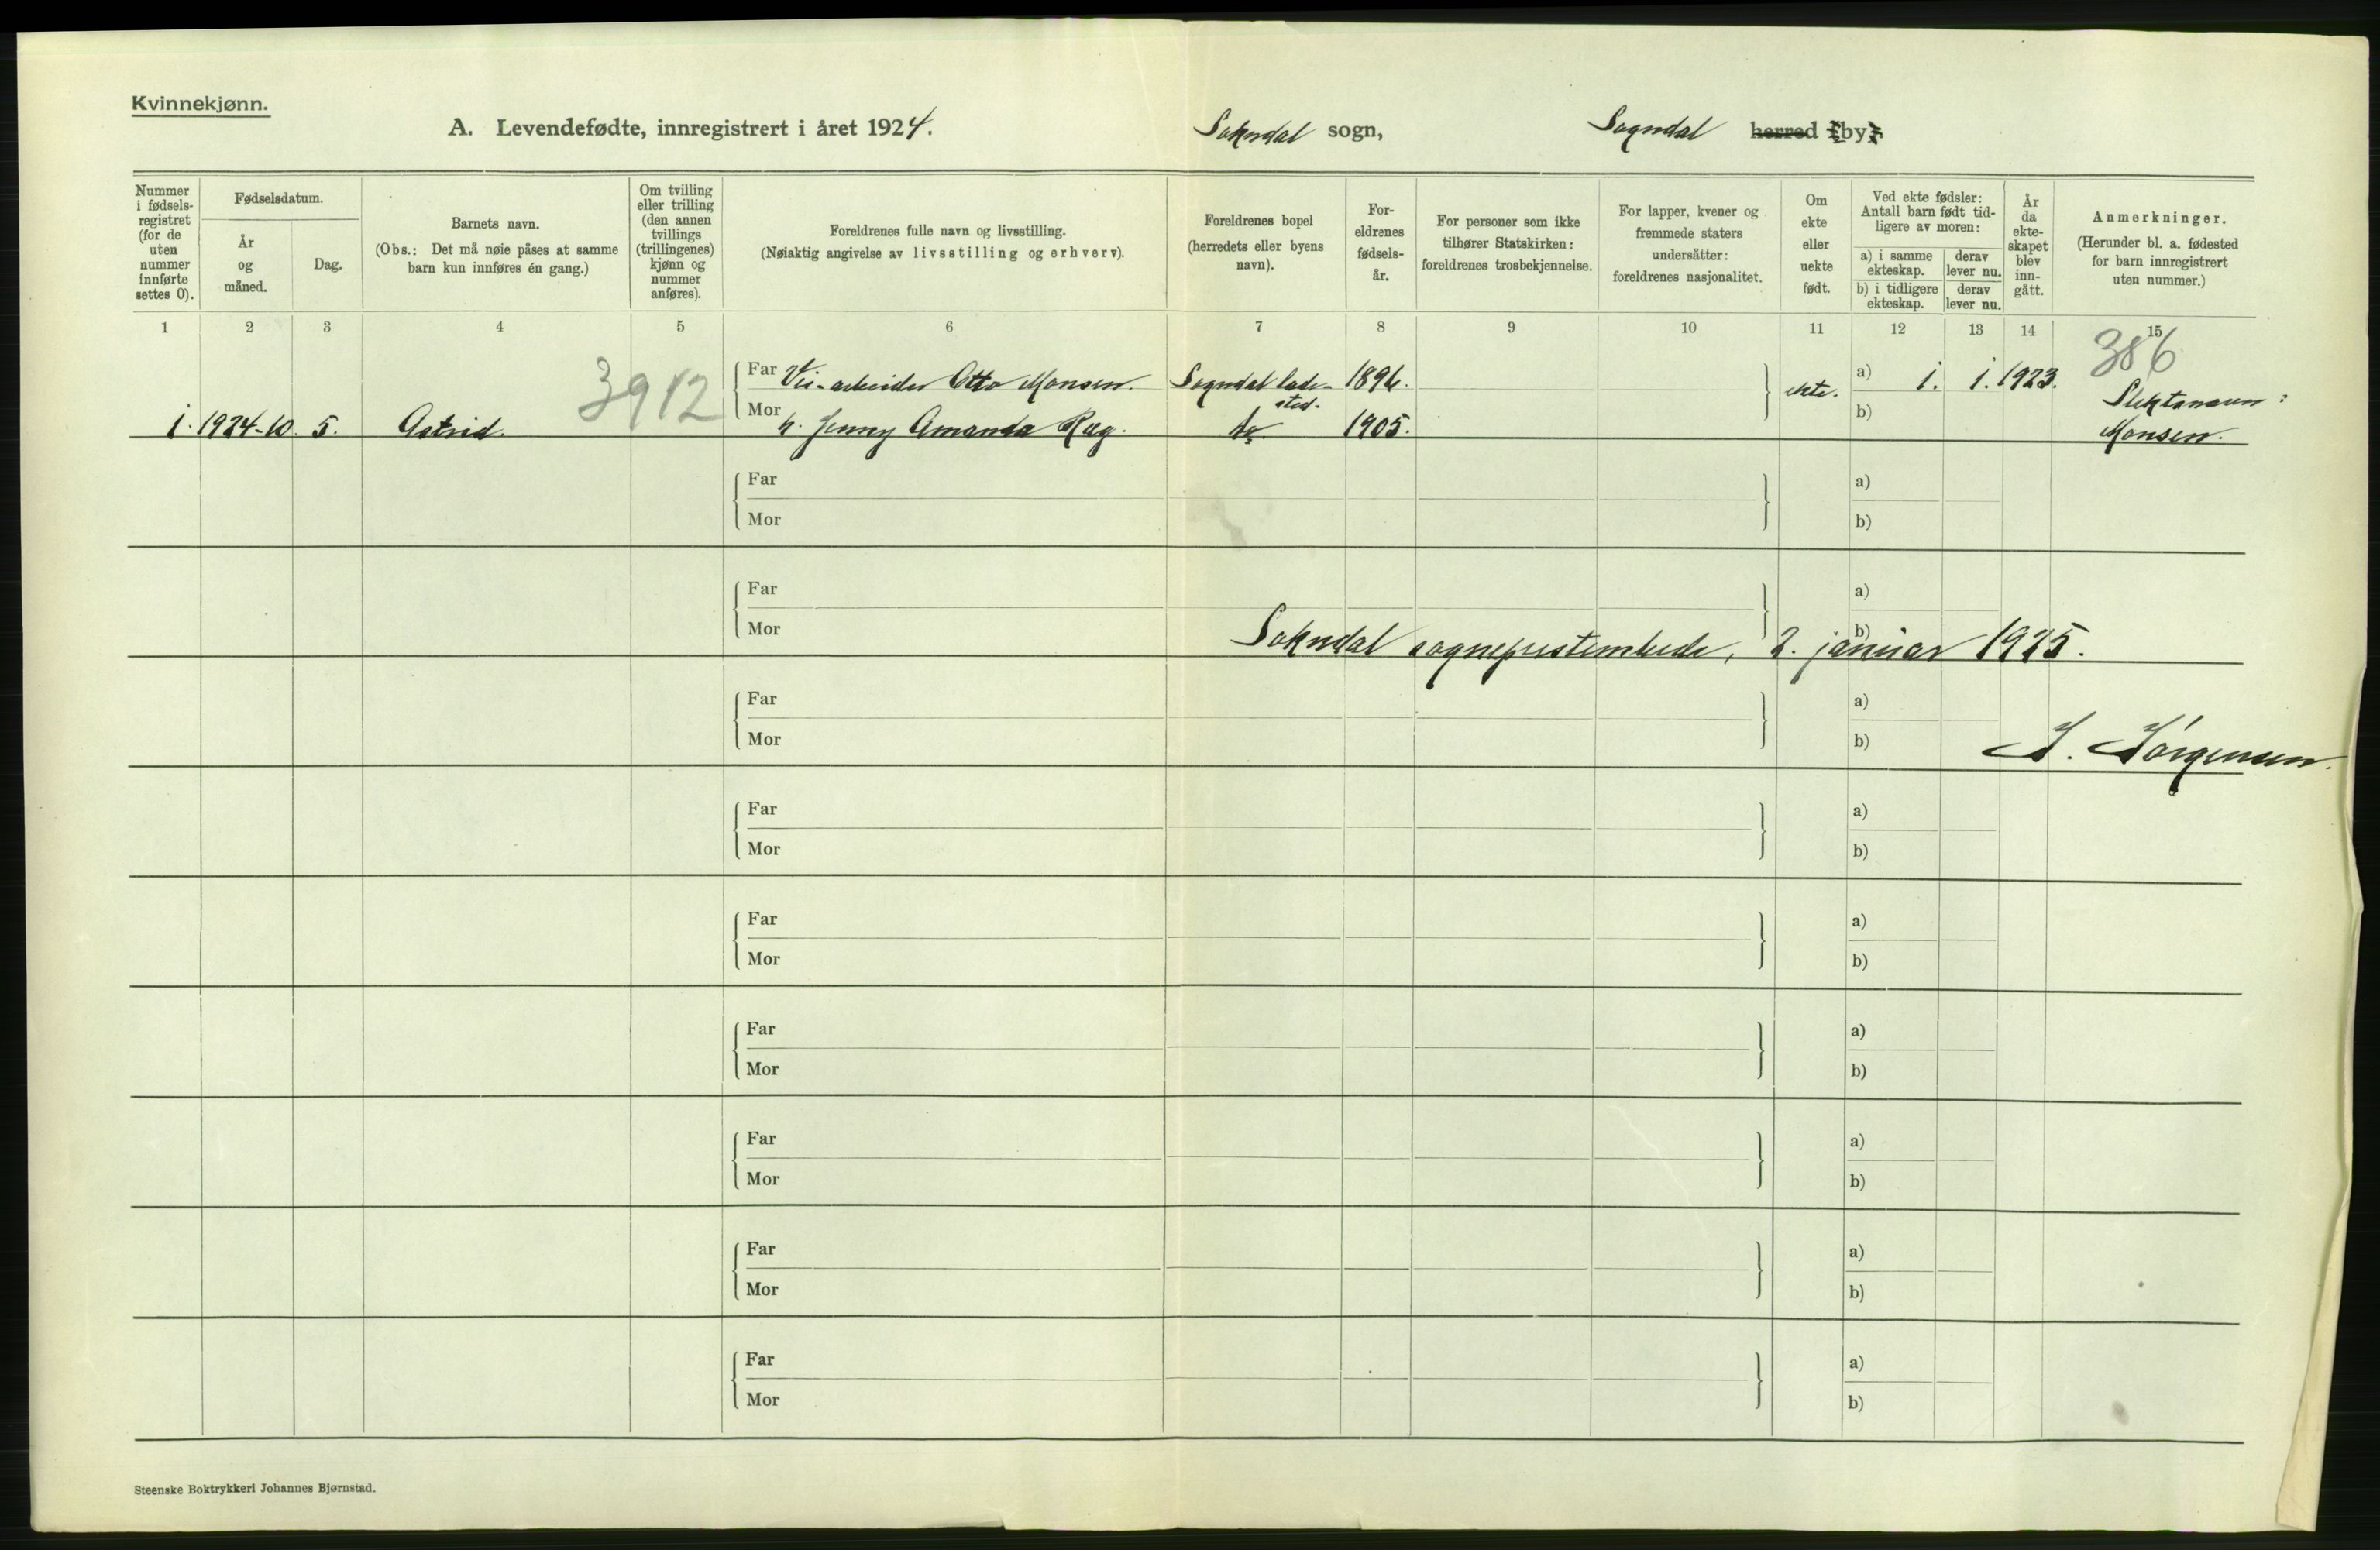 Kvinnekjønn.
A. Levendefødte, innregistrert i året 1924. Sokndal sogn, Sogndal herred (by).
Nummer i fødsels-registret (for de uten nummer innførte settes 0).
Fødselsdatum.
År og måned.
Dag.
Barnets navn.
(Obs.: Det må nøie påses at samme barn kun innføres én gang.)
Om tvilling eller trilling (den annen tvillings (trillingenes) kjønn og nummer anføres).
Foreldrenes fulle navn og livsstilling.
(Nøiaktig angivelse av livsstilling og erhverv).
Foreldrenes bopel (herredets eller byens navn).
For-eldrenes fødsels-år.
For personer som ikke tilhører Statskirken: foreldrenes trosbekjennelse.
For lapper, kvener og fremmede staters undersåtter: foreldrenes nasjonalitet.
Om ekte eller uekte født.
Ved ekte fødsler: Antall barn født tid-ligere av moren:
a) i samme ekteskap. derav lever nu.
b) i tidligere ekteskap. derav lever nu.
År da ekte-skapet blev inn-gått.
Anmerkninger.
(Herunder bl. a. fødested for barn innregistrert uten nummer.)
1 2 3 4 5 6 7 8 9 10 11 12 13 14 15
3912 386
Far Vei-arbeider Otto Monsen. Sogndal lade-sted. 1896. ekte. a) 1. 1. 1923. Slektsnavn:
1. 1924-10. 5. Astrid. Mor h. Jenny Amanda Ræg. do 1905. b) Monsen.
Far a)
Mor b)
Far a)
Mor b)
Sokndal sogneprestembede, 2. januar 1925.
Far a)
Mor b)
J. Jørgensen.
Far a)
Mor b)
Far a)
Mor b)
Far a)
Mor b)
Far a)
Mor b)
Far a)
Mor b)
Far a)
Mor b)
Steenske Boktrykkeri Johannes Bjørnstad.